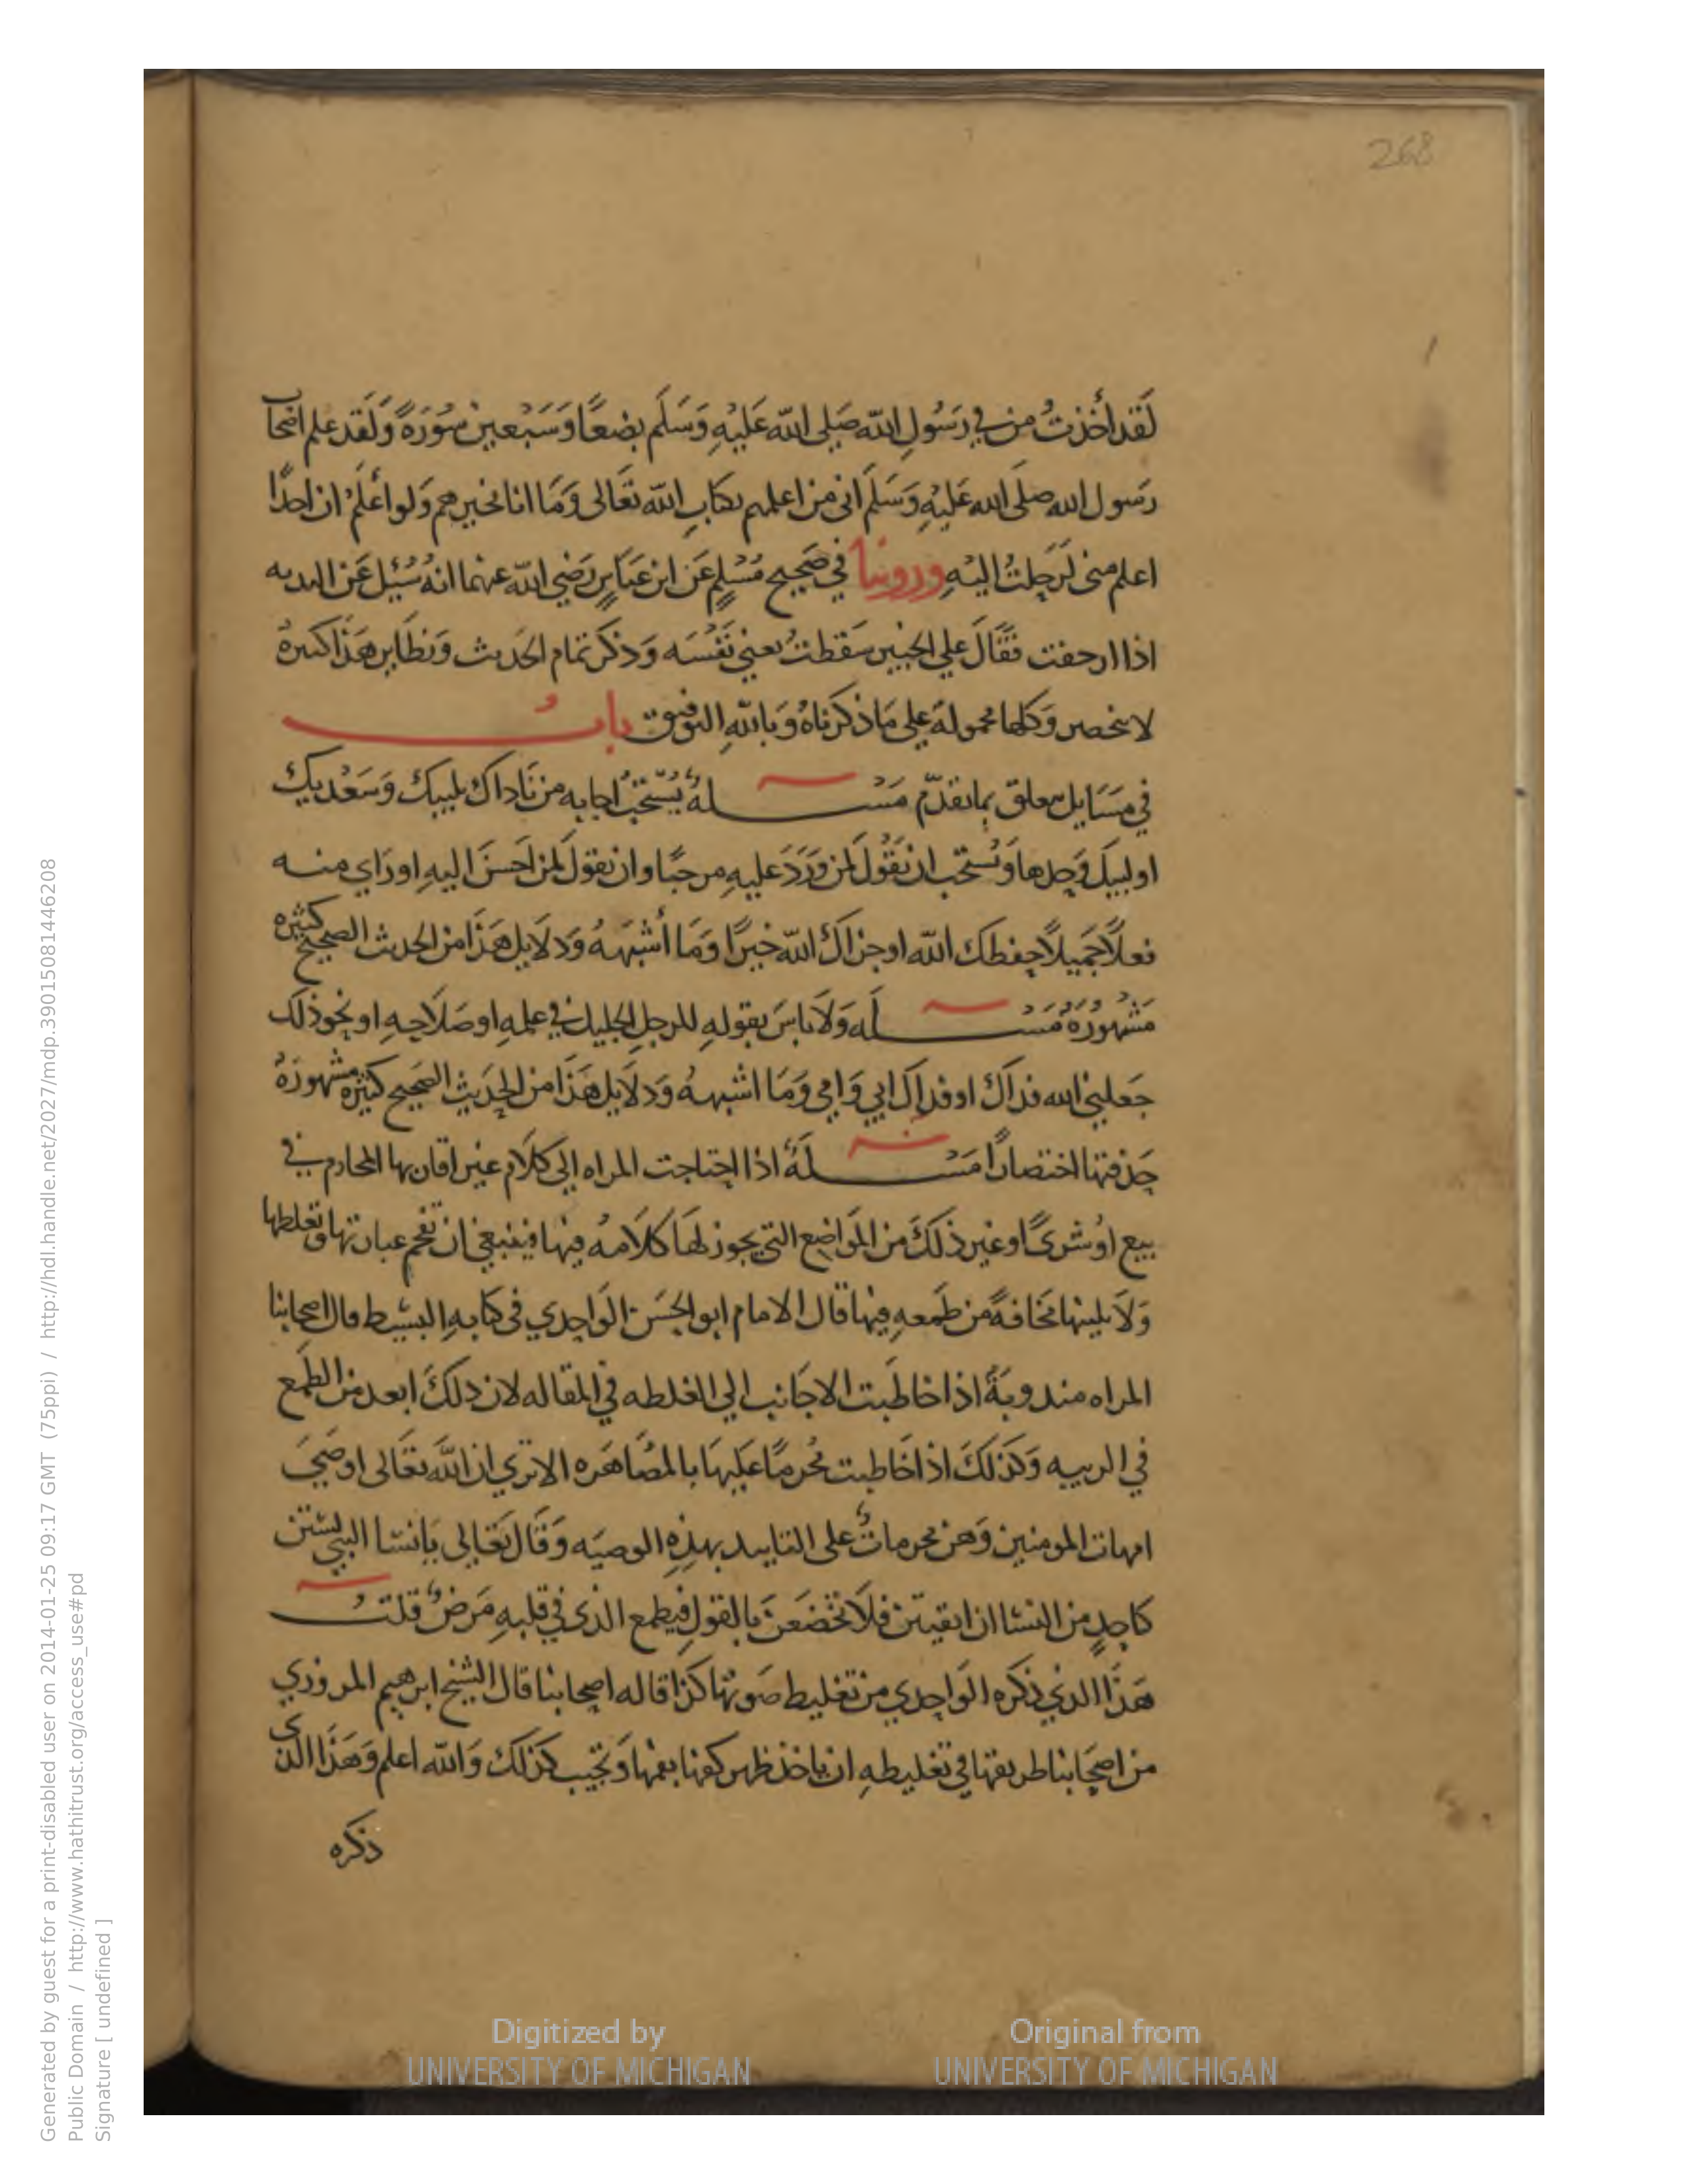 268
لَقَد أَخَذتُ من في رَسُولِ اللّه صَلى اللّه عَليْهِ وَسَلَم بضعًا وَسَبْعين سُورَةً وَلَقد علم اصحاب
رَسول الله صلى الله عَليْهِ وَسَلَم انى من اعلمهم بكتابِ اللّه تعَالى وَمَا انا بخيرهم وَلو أعْلَمُ ان احدًا
اعلم منى لَرَحلتُ اليْهِ وروينا في صَحيح مُسْلِمٍ عَن ابن عَبَاسٍ رَضي اللّه عنهما انهُ سُئِل عَن البدنه
اذا ازحفت فقَالَ علي الخبير سَقطتُ يعني نَفْسَه وَذكَر تمام الحَديث وَنظَاير هَذا كثيرةٌ
لا تنحصر وَكلها محمولة على مَا ذكرناهُ وَبالله التوفيق بابُ
في مَسَايل تتعلق بما تقدّم مَسْلهٌ يُسْتحَبُّ اجابه من نَاداكَ بلبيكَ وَسَعْديكَ
او لبيكَ وَحدها وَيُستحب ان يَقُولَ لمن وَرَدَ عليهِ مرحبًا وان يقولَ لمن احسَن اليهِ او رَاي منه
فعلًا جَميلًا حفظك اللّه او جزاكَ اللّه خيرًا وَمَا أشبَهَهُ وَدلَايل هَذا من الحديث الصحيح كثيره
مَشهُورَةٌ مَسْلَه وَلَا باسَ بقولهِ للرجلِ الجليل في علمهِ او صَلَاحهِ او نحو ذلك
جَعلني الله فداكَ او فداكَ ابي وَامي وَمَا اشبههُ وَدلَايل هَذا من الحَديثِ الصَحيح كثيرهٌ مشهورَةٌ
حَذفتها اختصارًا مَسْلَةٌ اذا احتاجت المراه الى كلَام غير اقاربها المحارم في
بيع او شرىً او غير ذلكَ من المَواضع التي يجوز لهَا كلَامهُ فيها فينبغي ان تفخم عبارتها وتغلظها
وَلَا يلينها مخافةً من طَمعهِ فيها قال الامام ابو الحَسَن الوَاحدي في كتابهِ البسيط قال اصحابنا
المراه مندوبَةٌ اذا خاطَبت الاجَانب الي الغلظه في المقاله لان ذلكَ ابعد من الطمع
في الريبه وَكذلكَ اذا خَاطبت مُحرمًا عَليهَا بالمصَاهَره الا تري ان اللّه تعَالى اوصَى
امهات المومنين وَهن محرماتٌ على التابيد بهذِهِ الوصيَه وَقَال تعَالى يَا نسَا النبي لستن
كاحدٍ من النسَا ان اتقيتن فلَا تخضَعنَ بالقولِ فيطمع الذى في قلبهِ مَرضٌ قلتُ
هَذا الذي ذكره الوَاحدي من تغليظ صَوتها كذا قاله اصحابنا قال الشيخ ابرهيم المروزي
من اصحَابنا طريقها في تغليظهِ ان تاخذ ظهر كفها بفمها وَتجيب كذلك وَالله اعلم وَهَذا الذى
ذكره
Generated by guest for a print-disabled user on 2014-01-25 09:17 GMT (75ppi) / http://hdl.handle.net/2027/mdp.39015081446208
Public Domain / http://www.hathitrust.org/access_use#pd
Signature [ undefined ]
Digitized by
UNIVERSITY OF MICHIGAN
Original from
UNIVERSITY OF MICHIGAN